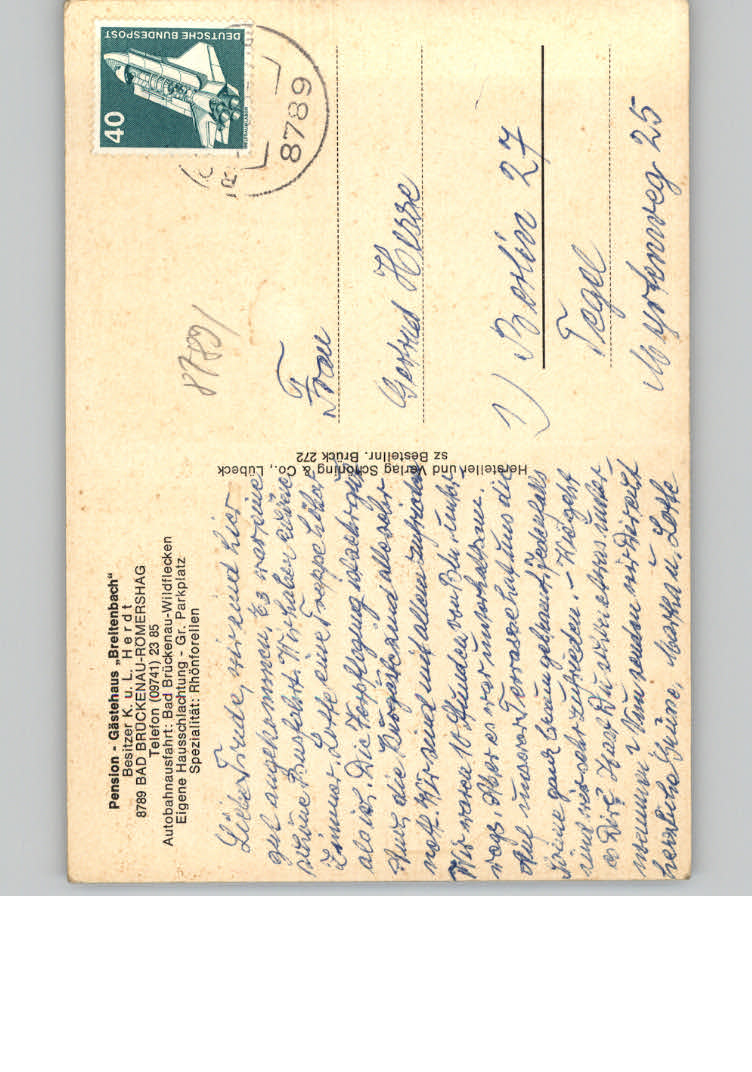 Pension - Gästehaus „Breitenbach“
Besitzer K. u. L. Herdt
8789 BAD BRÜCKENAU-RÖMERSHAG
Telefon (09741) 23 85
Autobahnausfahrt: Bad Brückenau-Wildflecken
Eigene Hausschlachtung - Gr. Parkplatz
Spezialität: Rhönforellen
Liebe Trude, wir sind hier
gut angekommen. Es war eine
schöne Busfahrt. Wir haben schöne
Zimmer. Lotte eine Treppe höher
als ich. Die Verpflegung ist sehr gut
Auch die Busgäste sind alle sehr
nett. Wir sind mit allem zufrieden
Wir waren 10 Stunden im Bus unter-
wegs. Aber es war unterhaltsam.
Auf unserer Terrasse hat uns die
Sonne ganz braun gebrannt. Jedenfalls
sind wir sehr zufrieden. – Wie geht
es Dir? Hast Du schon etwas unter-
nommen? Nun senden wir Dir recht
herzliche Grüsse. Martha u. Lotte
Hersteller und Verlag Schöning & Co., Lübeck
sz Bestellnr. Brück 272
DEUTSCHE BUNDESPOST
40
8789
8789/
Frau
Gertrud Hesse
1) Berlin 27
Tegel
Myrtenweg 25